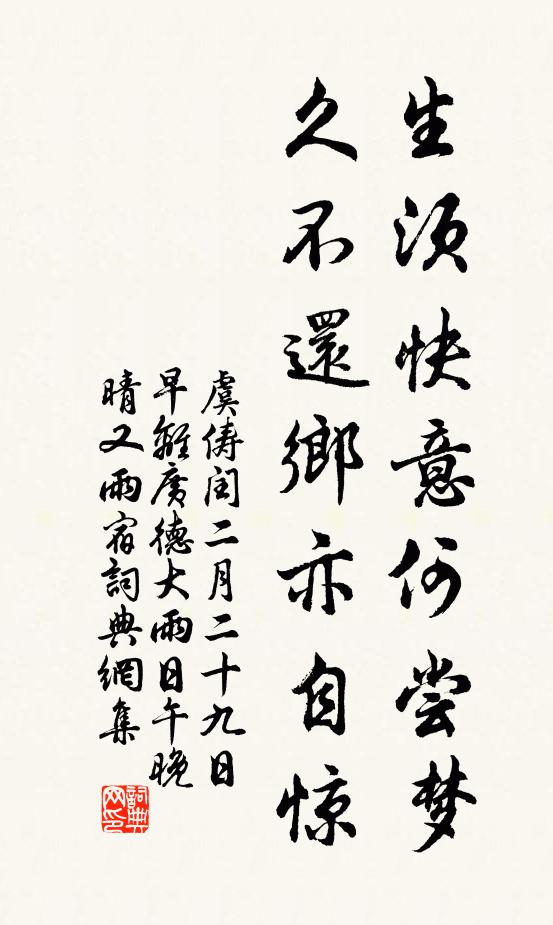 生须快意何尝梦
久不還鄉亦自惊
虞儔闰二月二十九日
早離廣德大雨日午晚
晴又雨宿詞典網集
詞典
网印